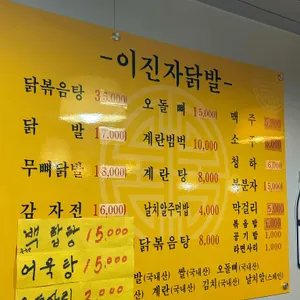 -이진자닭발-
닭볶음탕 35,000
닭 발 17,000
무뼈닭발 18,000
감자전 16,000
백합탕 15,000
어묵탕 15,000
2,000
오돌뼈 15,000
계란범벅 10,000
계란탕 8,000
날치알주먹밥 4,000
닭볶음밥 8,000
맥 주
소 주
청 하
복분자 15,000
막걸리
볶음밥
공기밥
라면사리
(국내산) 쌀(국내산) 오돌뼈(국내산)
계란(국내산) 김치(국내산) 날치알(스페인)